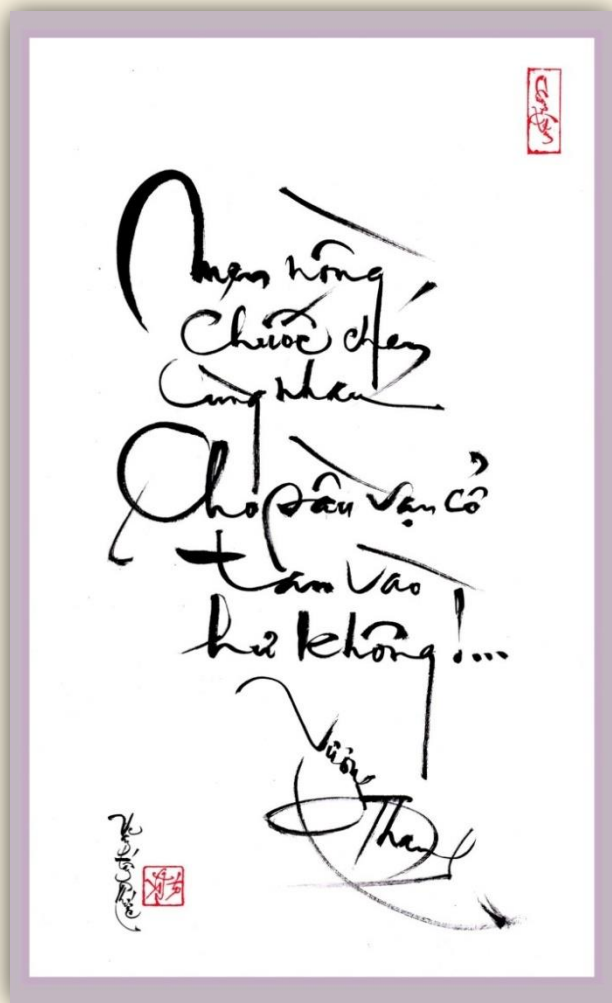 Men nồng
Chuốc chén
Cùng nhau
Cho sầu vạn cổ
tan vào
hư không!...
Vương
Thanh